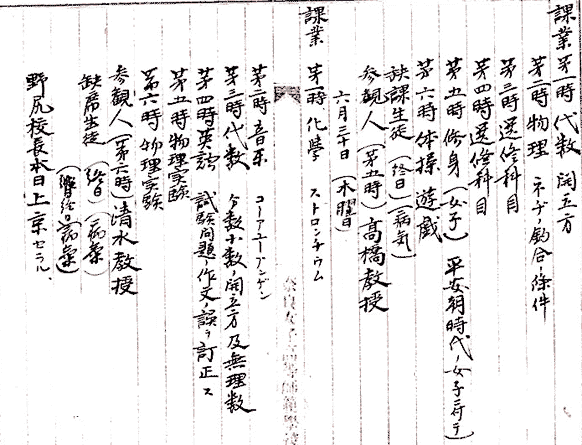 課業 第一時 代数 開立方
第二時 物理 ネヂ、釣合ノ條件
第三時 選修科目
第四時 選修科目
第五時 修身 (女子) 平安朝時代ノ女子ニ付テ
第六時 体操 遊戯
缺課生徒 (終日) (病気)
参観人 (第五時) 高橋教授
六月三十日 (木曜日)
課業 第一時 化學 ストロンチウム
第二時 音楽 コーアユーアンゲン
第三時 代数 分数小数ノ開立方及無理数
第四時 英語 試験問題ノ作文ノ誤ヲ訂正ス
第五時 物理実験
第六時 物理実験
参観人 (第六時) 清水教授
缺席生徒 (終日) (病気)
(病気)
野尻校長本日上京セラル、
奈良女子高等師範學校